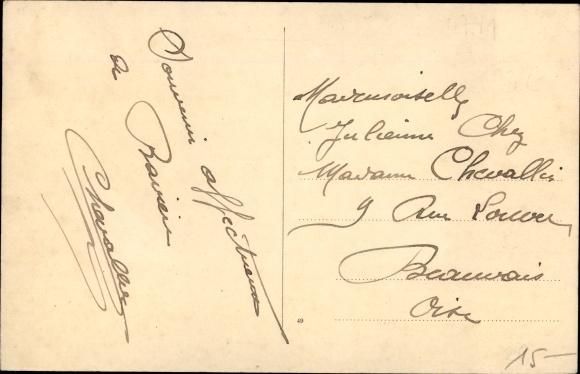 Souvenir affectueux
de
Chevallier
Mademoiselle
Julienne Chez
Madame Chevallier
9 Rue
Beauvais
Oise
15-